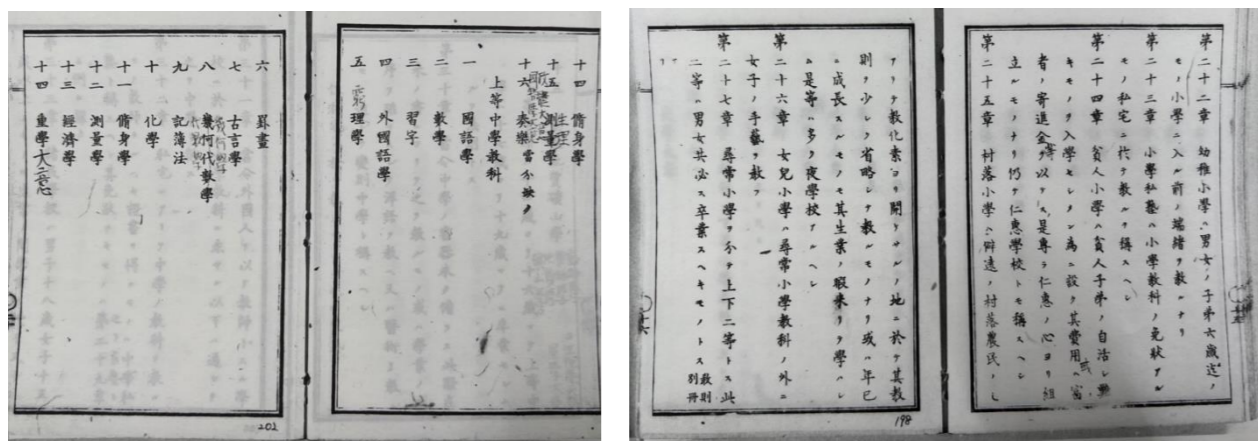 第二十二章 幼稚小學ハ男女ノ子弟六歳迄ノ
モノ小學ニ入ル前ノ端緒ヲ教ルナリ
第二十三章 小學私塾ハ小學教科ノ免狀アル
モノ私宅ニ於テ教ルヲ稱スヘシ
第二十四章 貧人小學ハ貧人子弟ノ自活シ難
キモノヲ入學セシメン爲ニ設ク其費用ハ富
者ノ寄進金ヲ以テス是專ラ仁惠ノ心ヨリ組
立ルモノナリ仍テ仁惠學校トモ稱スヘシ
第二十五章 村落小學ハ僻遠ノ村落農民ノミ
アリテ教化素ヨリ開ケサルノ地ニ於テ其教
則ヲ少シク省略シテ教ルモノナリ或ハ年已
ニ成長スルモノモ其生業ノ暇來リテ學ハシ
ム是等ハ多ク夜學校アルヘシ
第二十六章 女兒小學ハ尋常小學教科ノ外ニ
女子ノ手藝ヲ教フ
第二十七章 尋常小學ヲ分テ上下二等トス此
二等ハ男女共必ス卒業スヘキモノトス 教則別冊
198
十四 脩身學
十五 測量學 生理
十六 奏樂 當分欠ク
上等中學教科
一 國語學
二 數學
三 習字
四 外國語學
五 理學
六 罫畫
七 古言學
八 幾何代數學
九 記簿法
十 化學
十一 脩身學
十二 測量學
十三 經濟學
十四 重學
202